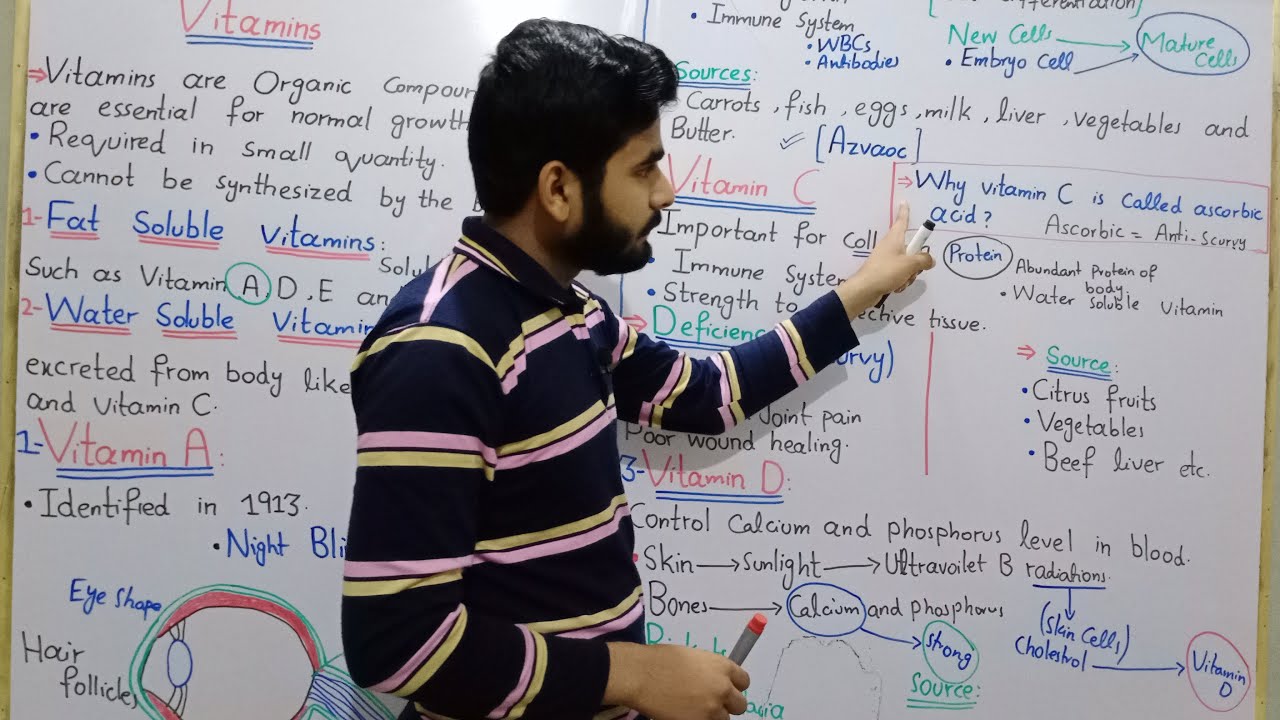 Vitamins
⇒Vitamins are Organic Compoun
are essential for normal growth
• Required in small quantity.
• Cannot be synthesized by the
1- Fat Soluble Vitamins:
Such as Vitamin A, D, E an
2- Water Soluble Vitamin
excreted from body like
and Vitamin C.
1- Vitamin A:
• Identified in 1913.
• Night Bli
Eye Shape
Hair
follicles
• Immune System
• WBCs
• Antibodies
New Cells
• Embryo Cell
Mature
Cells
Sources:
Carrots, fish, eggs, milk, liver, vegetables and
Butter.
✓ [Azvaoc]
Vitamin C
⇒ Why vitamin C is called ascorbic
acid?
Ascorbic = Anti-Scurvy
Important for
Protein
Abundant protein of
body.
• Water soluble Vitamin
• Immune System
• Strength to
ective tissue.
⇒ Deficienc
urvy)
Joint pain
Poor wound healing.
⇒ Source:
• Citrus fruits
• Vegetables
• Beef liver etc.
3- Vitamin D:
Control Calcium and phosphorus level in blood.
• Skin → Sunlight → Ultravoilet B radiations.
Bones → Calcium and phosphorus
strong
Source:
(Skin Cells)
Cholestrol → Vitamin
D